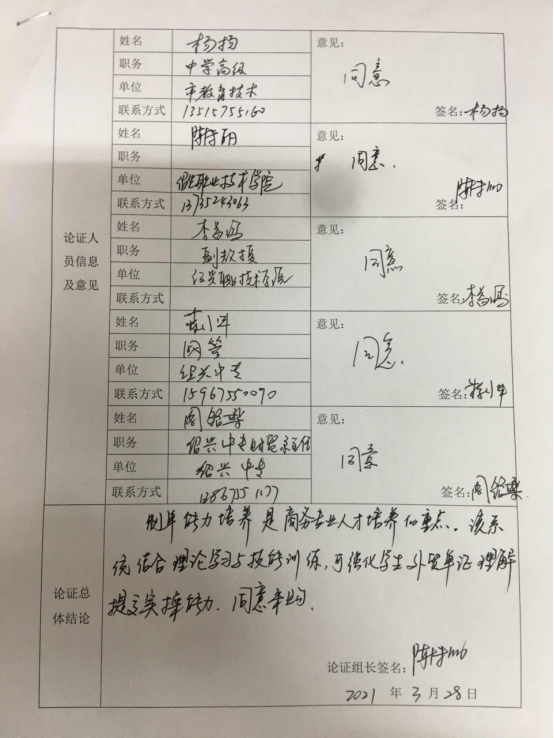 姓名 杨扬 意见：
职务 中学高级 同意
单位 市教育技术
联系方式 13515755160 签名：杨扬
姓名 意见：
职务 同意.
单位 职业技术学院
联系方式 13735243063 签名：
论证人
员信息
及意见
姓名 意见：
职务 副教授 同意
单位 绍兴职业技术学院
联系方式 签名：
姓名 意见：
职务 网管 同意.
单位 绍兴中专
联系方式 15967550070 签名：
姓名 意见：
职务 绍兴中专 主任 同意
单位 绍兴中专
联系方式 签名：
论证总
体结论
制单能力培养是商务专业人才培养的重点。该系
统结合理论学习与技能训练,可强化学生外贸单证理解
提交实操能力.同意采购.
论证组长签名：
2021 年 3 月 28 日